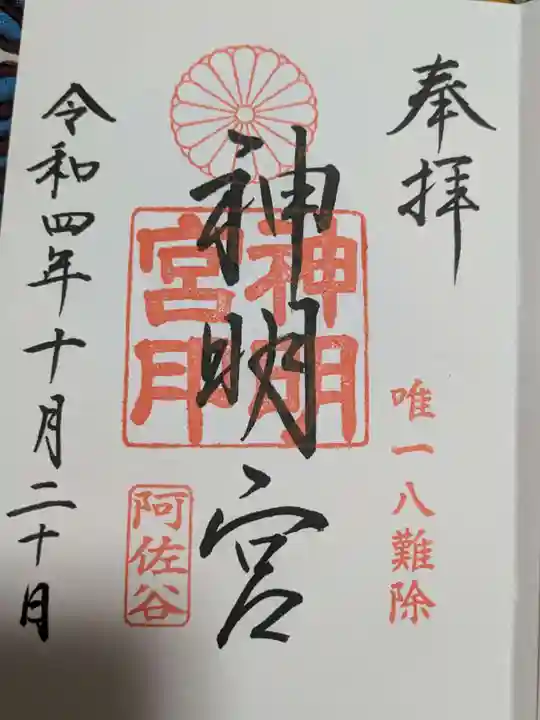 奉拝
唯一八難除
神明宮
神明
宮印
阿佐谷
令和四年十月二十日